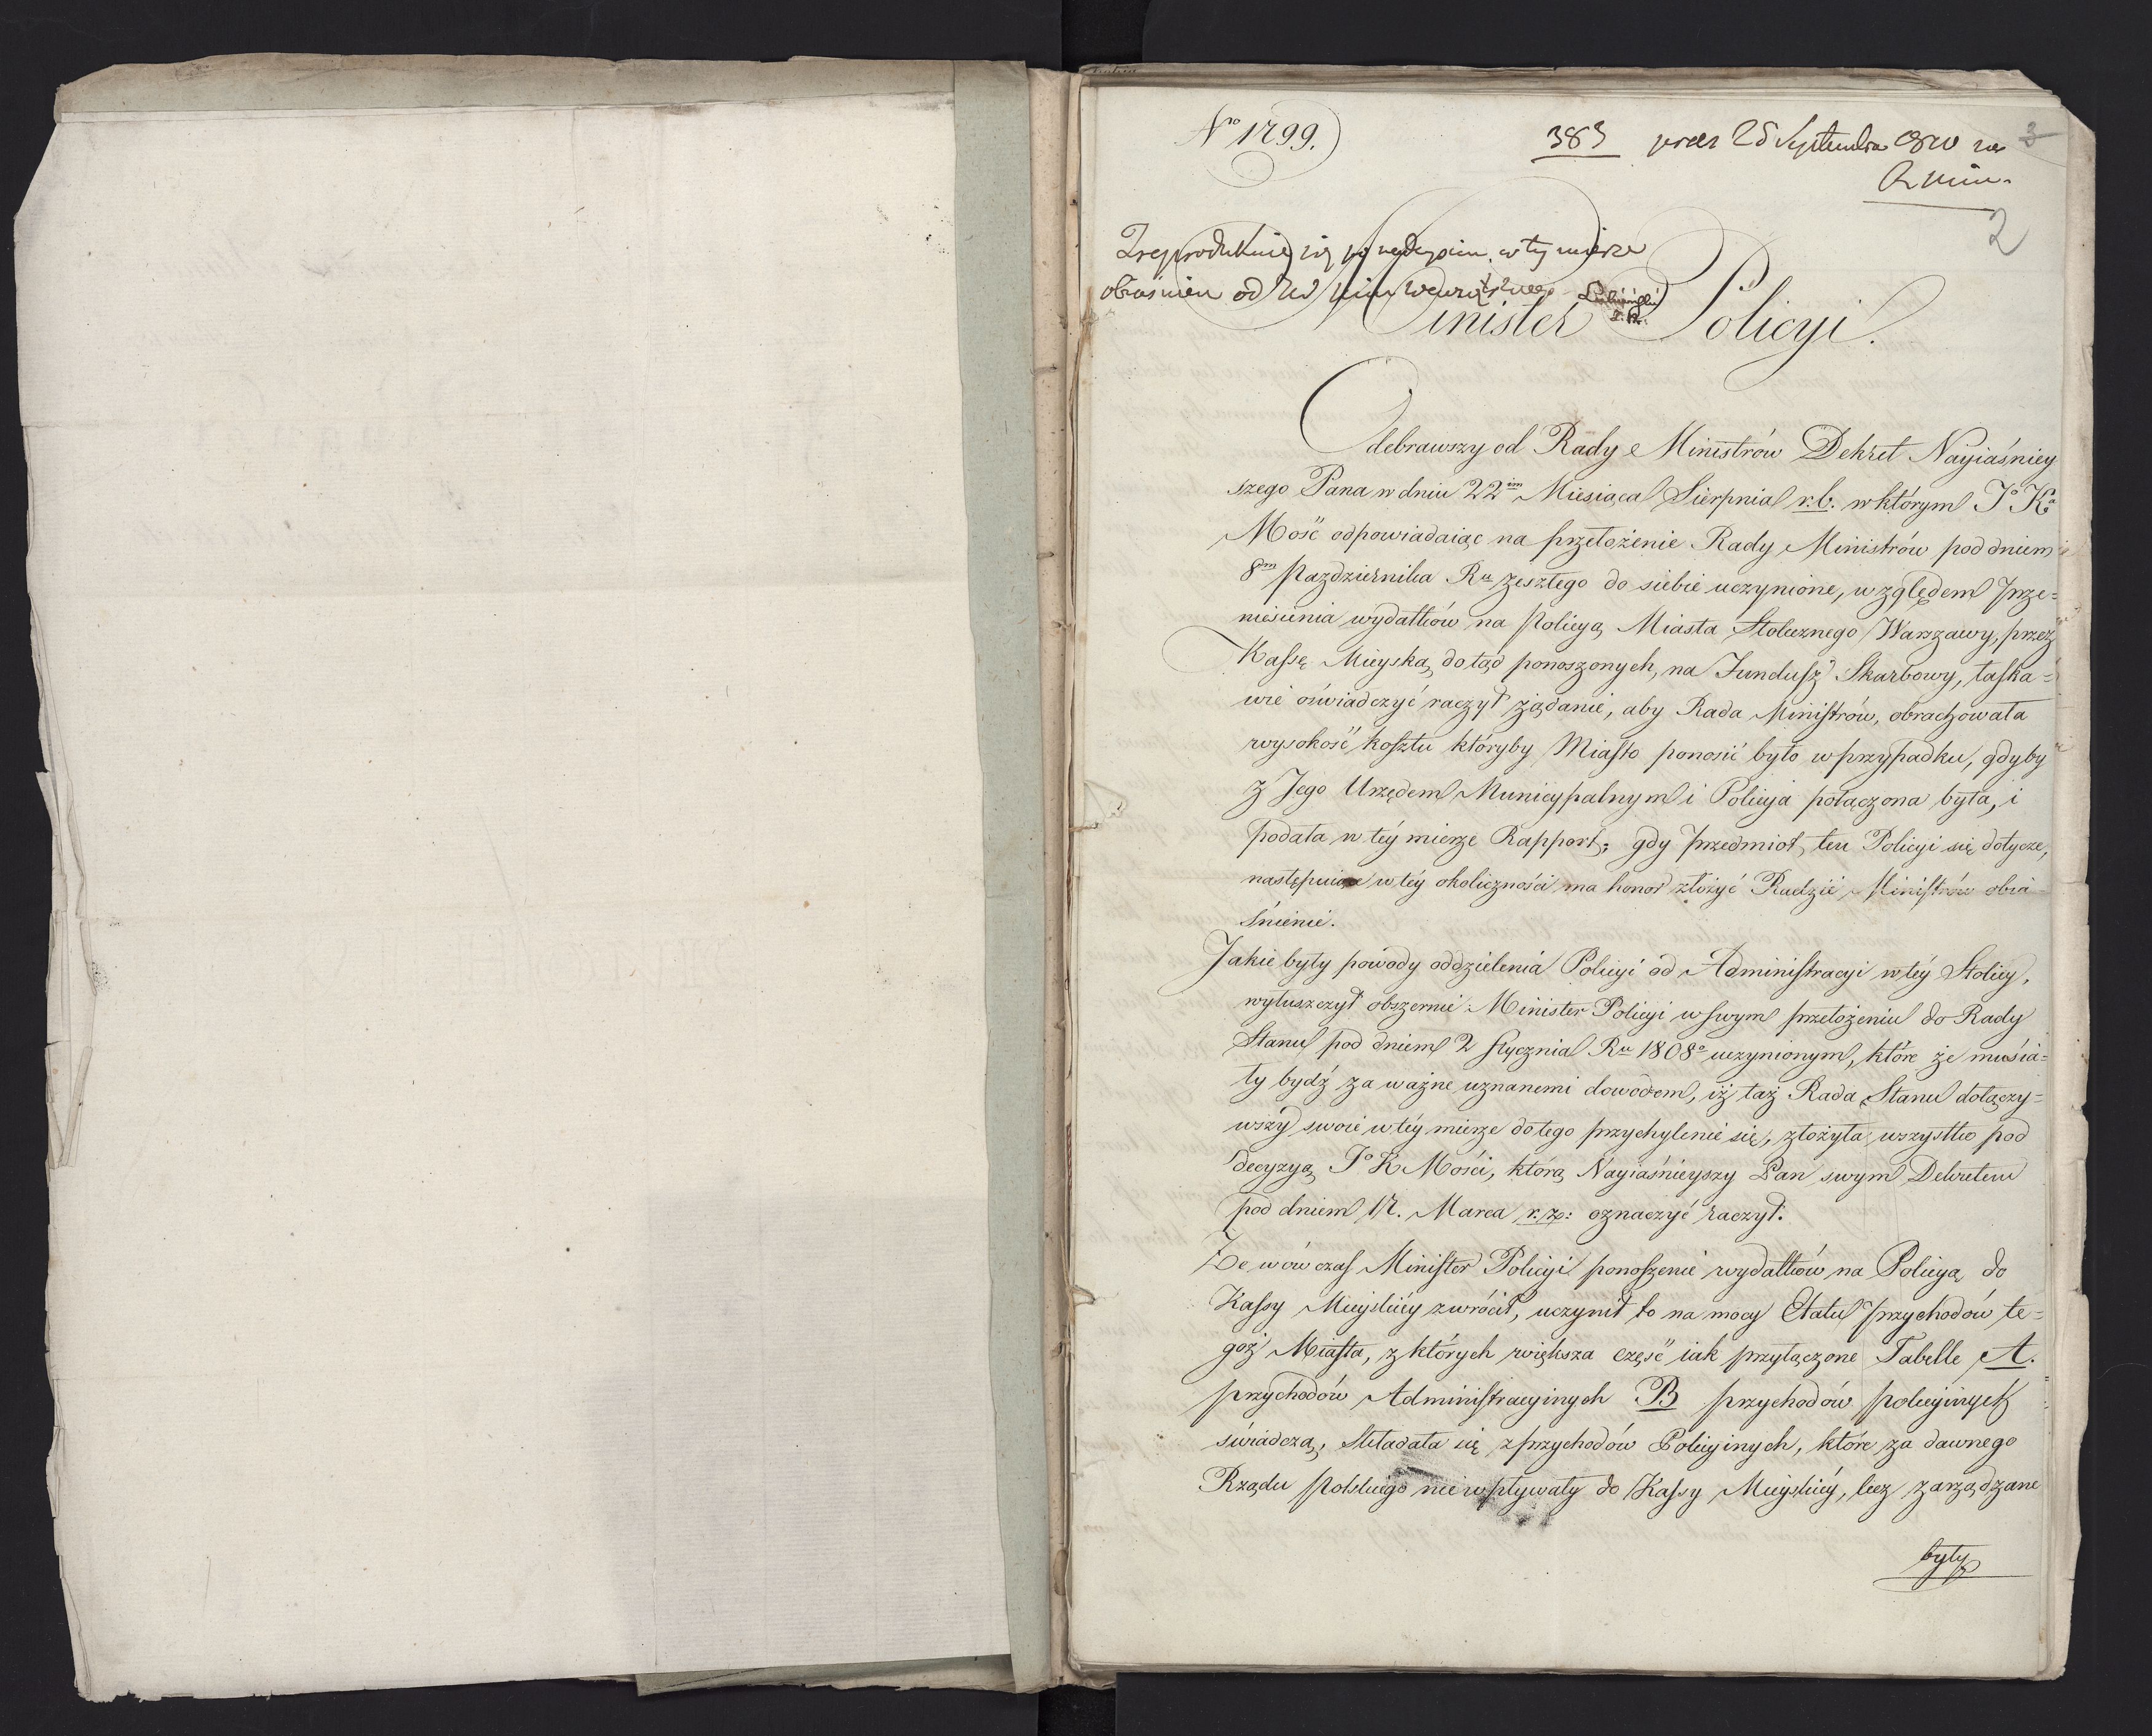 No 1799.
383 prez 25 Septembra
3
2
Zreprodukuie się po w tey mierze
obiaśnieu od
Minister Policyi.
Odebrawszy od Rady Ministrów Dekret Nayiaśniey
szego Pana w dniu 22im Miesiąca Sierpnia r. b. w którym Jo Ka
Mość odpowiadaiąc na przełożenie Rady Ministrów pod dniem
8m Pazdziernika Ru zeszłego do siebie uczynione, względem prze=
niesienia wydatków na Policyą Miasta Stołecznego Warszawy, przez
Kassę Mieyską dotąd ponoszonych, na Fundusz Skarbowy, łaska=
wie oświadczyć raczył żądanie, aby Rada Ministrów, obrachowała
wysokość kosztu któryby Miasto ponosić było w przypadku, gdyby
z Jego Urzędem Municypalnym i Policya połączona była, i
podała w téy mierze Rapport; gdy przedmiot ten Policyi się dotycze,
następuiące w téy okoliczności ma honor złożyć Radzie Ministrów obia=
śnienie.
Jakie były powody oddzielenia Policyi od Administracyi w téy Stolicy,
wyłuszczył obszernie Minister Policyi w swym przełożeniu do Rady
Stanu pod dniem 2 Stycznia Ru 1808o uczynionym, które że musia=
ły bydź za ważne uznanemi dowodem, iż taż Rada Stanu dołączy=
wszy swoie w téy mierze do tego przychylenie się, złożyła wszystko pod
decyzyą Jo K Mości, którą Nayiaśnieyszy Pan swym Dekretem
pod dniem 17. Marca r. z: oznaczyć raczył.
Że wówczas Minister Policyi ponoszenie wydatków na Policyą do
Kassy Mieyskiéy zwrócił, uczynił to na mocy Etatu przychodów te=
goż Miasta, z których większa część iak przyłączone Tabelle A.
przychodów Administracyinych B przychodów policyinych
świadczą, składała się z przychodów Policyinych, które za dawnego
Rządu Polskiego nie wpływały do Kassy Mieyskiéy, lecz zarządzane
były